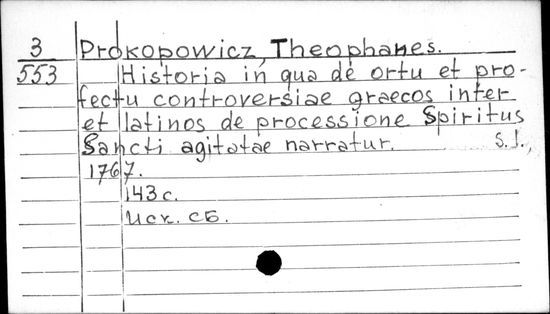 3 Prokopowicz, Theophanes.
553 Historia in qua de ortu et pro-
fectu controversiae graecos inter
et latinos de processione Spiritus
Sancti agitatae narratur. S.l.,
1767.
143 с.
Иск. СБ.